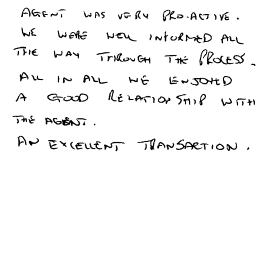 AGENT WAS VERY PRO.ACTIVE.
WE WERE WELL INFORMED ALL
THE WAY THROUGH THE PROCESS.
ALL IN ALL WE ENJOYED
A GOOD RELATIONSHIP WITH
THE AGENT.
AN EXCELLENT TRANSACTION.